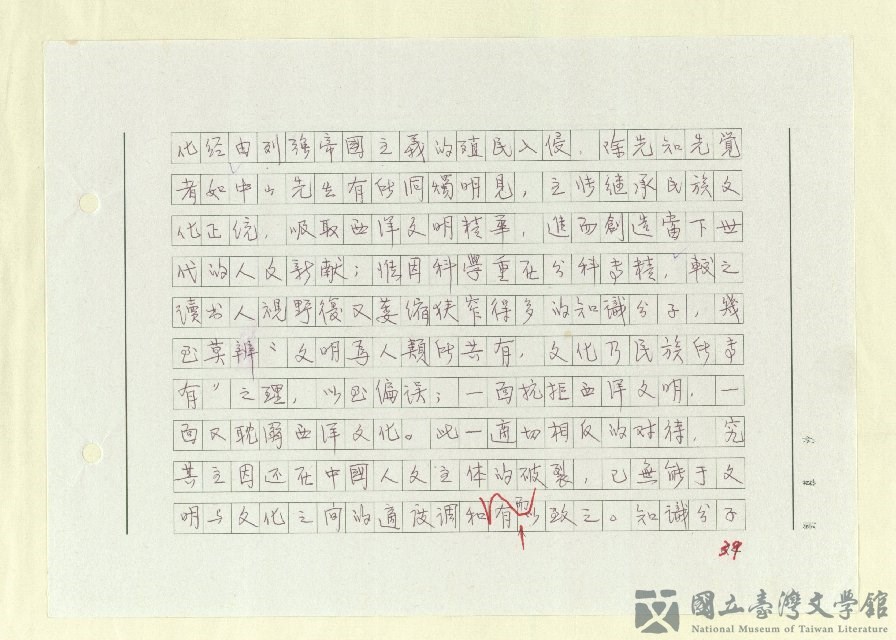 化经由列强帝國主義的殖民入侵．除先知先覺
者如中山先生有所洞燭明見，主張继承民族文
化正统．吸取西洋文明精華，進而創造當下世
代的人文新献；惟因科學重在分科専精，較之
讀书人視野復又萎缩狭窄得多的知識分子，幾
至莫辨〝文明為人類所共有．文化乃民族所専
有〞之理，以至偏误；一面抗拒西洋文明．一
面又耽溺西洋文化。此一適切相反的对待．究
其主因还在中國人文主体的破裂，已無能于文
明与文化之间的適度调和而有以致之。知識分子
39
國立臺灣文學館
National Museum of Taiwan Literature